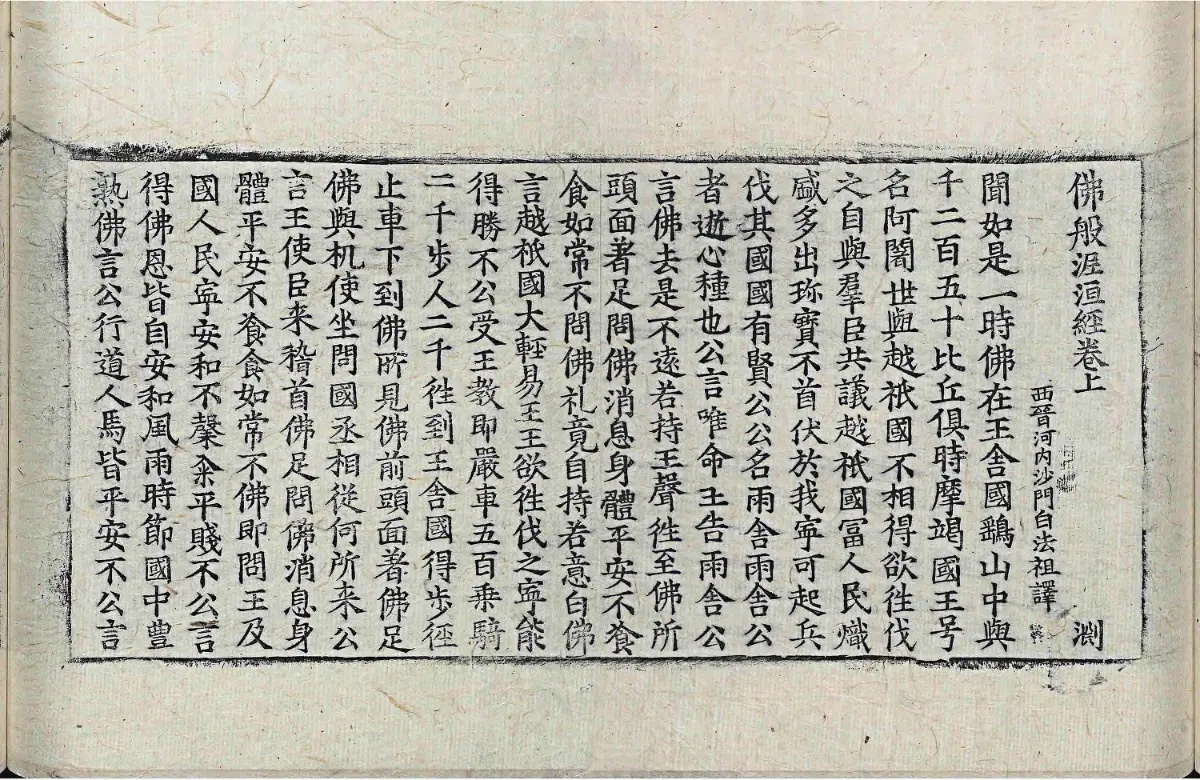 佛般泥洹經卷上 淵
西晉河内沙門白法祖譯
聞如是一時佛在王舍國鷂山中與
千二百五十比丘俱時摩竭國王号
名阿闍世與越祇國不相得欲徃伐
之自與羣臣共議越祇國冨人民熾
盛多出珎寶不首伏於我寧可起兵
伐其國國有賢公公名雨舍雨舍公
者逝心種也公言唯命王告雨舍公
言佛去是不遠若持王聲徃至佛所
頭面著足問佛消息身體平安不飡
食如常不問佛礼竟自持若意白佛
言越祇國大輕易王王欲徃伐之寧能
得勝不公受王教即嚴車五百乗騎
二千步人二千徃到王舍國得步徑
止車下到佛所見佛前頭面著佛足
佛與机使坐問國丞相從何所来公
言王使臣来稽首佛足問佛消息身
體平安不飡食如常不佛即問王及
國人民寧安和不糴米平賤不公言
得佛恩皆自安和風雨時節國中豊
熟佛言公行道人馬皆平安不公言